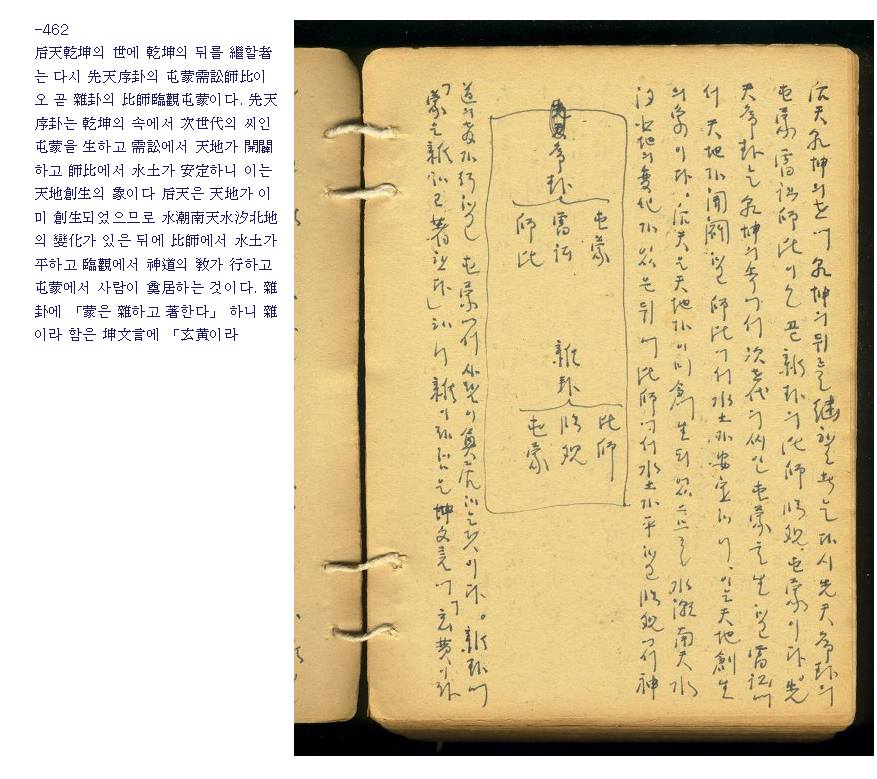 -462
后天乾坤의 世에 乾坤의 뒤를 繼할者
는 다시 先天序卦의 屯蒙需訟師比이
오 곧 雜卦의 比師臨觀屯蒙이다. 先天
序卦는 乾坤의 속에서 次世代의 씨인
屯蒙을 生하고 需訟에서 天地가 開闢
하고 師比에서 水土가 安定하니 이는
天地創生의 象이다 后天은 天地가 이
미 創生되었으므로 水潮南天水汐北地
의 變化가 있은 뒤에 比師에서 水土가
平하고 臨觀에서 神道의 敎가 行하고
屯蒙에서 사람이 奠居하는 것이다. 雜
卦에 「蒙은 雜하고 著한다」 하니 雜
이라 함은 坤文言에 「玄黄이라
后天乾坤의 世에 乾坤의 뒤를 繼할 者는 다시 先天序卦의
屯蒙需訟師比이오 곧 雜卦의 比師臨觀屯蒙이다. 先
天序卦는 乾坤의 속에서 次世代의 씨인 屯蒙을 生하고 需訟에
서 天地가 開闢하고 師比에서 水土가 安定하니, 이는 天地創生
의 象이다. 后天은 天地가 이미 創生되었으므로 水潮南天水
汐北地의 變化가 있은 뒤에 比師에서 水土가 平하고 臨觀에서 神
序卦
屯蒙
需訟
師比
雜卦
比師
臨觀
屯蒙
道의 敎가 行하고 屯蒙에서 사람이 奠居하는 것이다. 雜卦에
「蒙은 雜하고 著한다」 하니 雜이라 함은 坤文言에 「玄黄이라